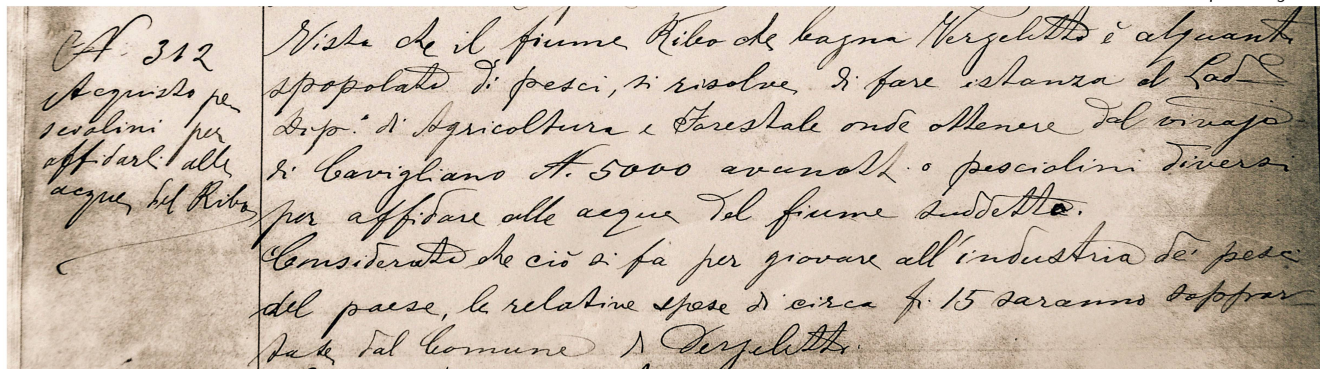 N. 312
Acquisto pe
sciolini per
affidarli alle
acque del Ribo
Visto che il fiume Ribo che bagna Vergeletto è alquanto
spopolato di pesci, si risolve di fare istanza al Lod.
Dip.º di Agricoltura e Forestale onde ottenere dal vivajo
di Cavigliano N. 5000 avanotti o pesciolini diversi
per affidare alle acque del fiume suddetto.
Considerato che ciò si fa per giovare all'industria de' pesci
del paese, le relative spese di circa fr. 15 saranno soppor
tate dal Comune di Vergeletto.